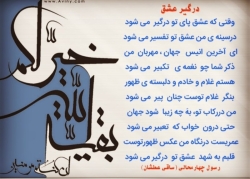 درگیر عشق
وقتی که عشق پای تو درگیر می شود
درسینه ی من عشق تو تفسیر می شود
ای آخرین انیس جهان، مهربان من
ذکر شما چو نغمه ی تکبیر می شود
هستم غلام و خادم و دلبسته ی ظهور
بنگر غلام توست چنان پیر می شود
من دررکاب تو، به چه زیبا شود جهان
حتی درون خواب که تعبیر می شود
عمریست درنگاه من عکس ظهورتوست
قلبم به شهد عشق تو درگیر می شود
رسول چهارمحالی (ساقی عطشان)
بقیة الله خیر لکم